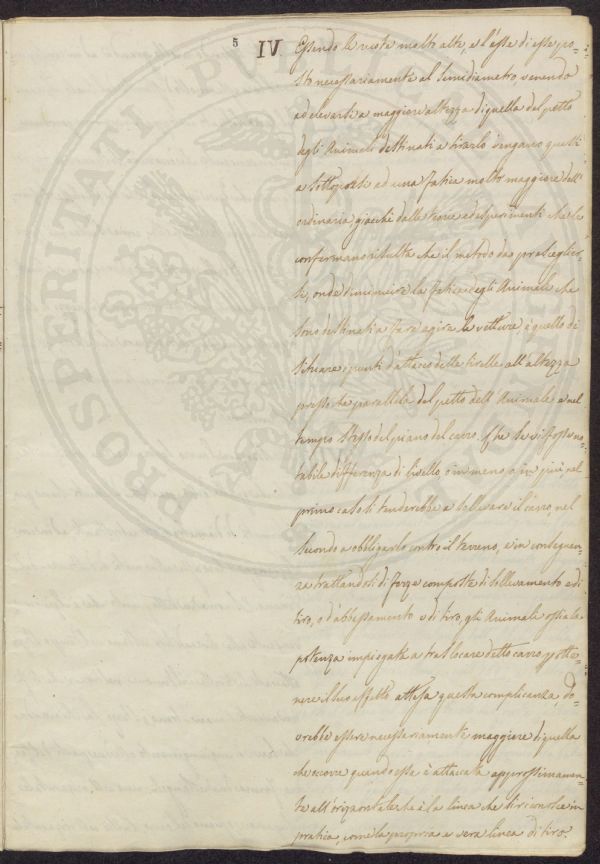 5 IV. Essendo le ruote molto alte, e l'asse di esse po=
sto necessariamente al Semidiametro, venendo
ad elevarsi a maggiore altezza di quella del petto
degli Animali destinati a tirarlo vengano questi
a sottoposti ad una fatica molto maggiore dell'
ordinaria, giacchè dalle teorie ed esperimenti che le
confermano risulta che il metodo da prescegliere
onde diminuire la fatica degli Animali che
sono destinati a fare agire le vetture, è quello di
situare i punti d'attacco delle tirelle all'altezza
presso la parallela del petto dell'Animale e nel
tempo stesso del piano del carro. Che se vi fosse no=
tabile differenza di livello o in meno, o in più, nel
primo caso si tenderebbe a sollevare il carro, nel
secondo a obbligarlo contro il terreno, e in conseguen=
za trattandosi di forze composte di sollevamento e di
tiro, o d'abbassamento e di tiro, gli Animali ossia la
potenza impiegata a traslocare detto carro p. otte=
nere il suo effetto attesa questa complicanza, do=
vrebbe essere necessariamente maggiore di quella
che occorre quando essa è attaccata approssimamen=
te all'orizzontale che è la linea che si riconosce in
pratica, come la propria e vera linea di tiro.
PROSPERITATI PUBLICAE